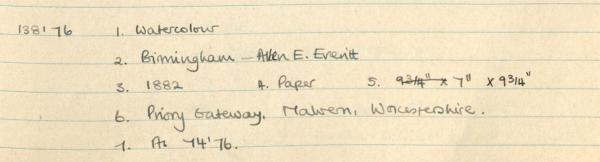 138'76 1. Watercolour
2. Birmingham – Allen E. Everitt
3. 1882 4. Paper 5. 9 3/4" x 7" x 9 3/4"
6. Priory Gateway, Malvern, Worcestershire.
7. As 74'76.